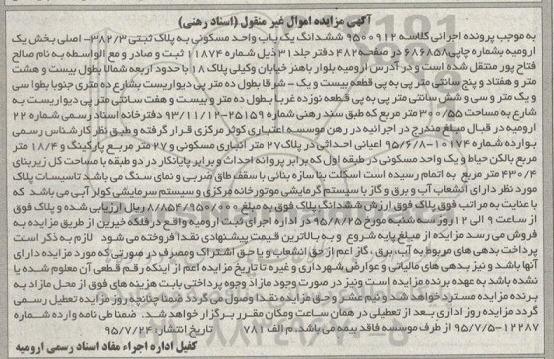 آگهی مزایده اموال غیر منقول (اسناد رهنی)
به موجب پرونده اجرائی کلاسه ۹۵۰۰۹۱۲ ششدانگ یک باب واحد مسکونی به پلاک ثبتی ۳۸۲/۳- اصلی بخش یک
ارومیه بشماره چاپی ۶۸۶۸۵۸ در صفحه ۴۸۲ دفتر جلد ۳۱ ذیل شماره ۱۱۸۷۴ ثبت و صادر و مع الواسطه به نام صالح
فتاح پور منتقل شده است و در آدرس ارومیه بلوار باهنر خیابان وکیلی پلاک ۱۸ با حدود اربعه شمالا بطول بیست و هشت
متر و هفتاد و پنج سانتی متر پی به پی قطعه بیست و یک - شرقا بطول ده متر پی دیواریست بشارع ده متری جنوبا بطول سی
و یک متر و سی و شش سانتی متر پی به پی قطعه نوزده غربا بطول ده متر و بیست و هفت سانتی متر پی دیواریست به
شارع به مساحت ۳۰۰/۵۵ متر مربع که طبق سند رهنی شماره ۲۵۱۵۹-۹۳/۱۱/۱۲ دفترخانه اسناد رسمی شماره ۲۲
ارومیه در قبال مبلغ مندرج در اجرائیه در رهن موسسه اعتباری کوثر مرکزی قرار گرفته و طبق نظر کارشناس رسمی
بوارده شماره ۱۰۱۷۴-۹۵/۶/۸ اعیانی احداثی در پلاک ۲۷ متر انباری مسکونی و ۲۷ متر مربع پارکینگ و ۱۸/۴ متر
مربع بالکن حیاط و یک واحد مسکونی در طبقه اول که برابر پروانه احداث و برابر پایانکار در دو طبقه با مساحت کل زیربنای
۴۳۰/۴ متر مربع به اتمام رسیده است اسکلت بنا سازه بنائی با سقف طاق ضربی و نمای سنگ می باشد تاسیسات پلاک
مورد نظر دارای انشعاب آب و برق و گاز با سیستم گرمایشی موتورخانه مرکزی و سیستم سرمایشی کولر آبی می باشد که
با عنایت به مراتب فوق پلاک فوق ارزش ششدانگ پلاک فوق به مبلغ ۸/۸۵۴/۹۵۰/۰۰۰ ریال ارزیابی شده و پلاک فوق
از ساعت ۹ الی ۱۲ روز سه شنبه مورخ ۹۵/۸/۲۵ در اداره اجرای ثبت ارومیه واقع در فلکه خیرین از طریق مزایده به
فروش می رسد مزایده از مبلغ پایه شروع و به بالاترین قیمت پیشنهادی نقدا فروخته می شود لازم به ذکر است
پرداخت بدهی های مربوط به آب، برق، گاز اعم از حق انشعاب و یا حق اشتراک و مصرف در صورتی که مورد مزایده دارای
آنها باشد و نیز بدهی های مالیاتی و عوارض شهرداری و غیره تا تاریخ مزایده اعم از اینکه رقم قطعی آن معلوم شده یا
نشده باشد به عهده برنده مزایده است و نیز در صورت وجود مازاد وجوه پرداختی بابت هزینه های فوق از محل مازاد به
برنده مزایده مسترد خواهد شد و نیم عشر و حق مزایده نقدا وصول می گردد ضمنا چنانچه روز مزایده تعطیل رسمی
گردد مزایده روز اداری بعد از تعطیلی در همان ساعت و مکان مقرر برگزار خواهد شد. ضمنا طی نامه وارده شماره
۱۲۲۸۷-۹۵/۷/۵ از طرف موسسه فاقد بیمه می باشد. م الف ۷۸۱ تاریخ انتشار: ۹۵/۷/۲۴
کفیل اداره اجراء مفاد اسناد رسمی ارومیه